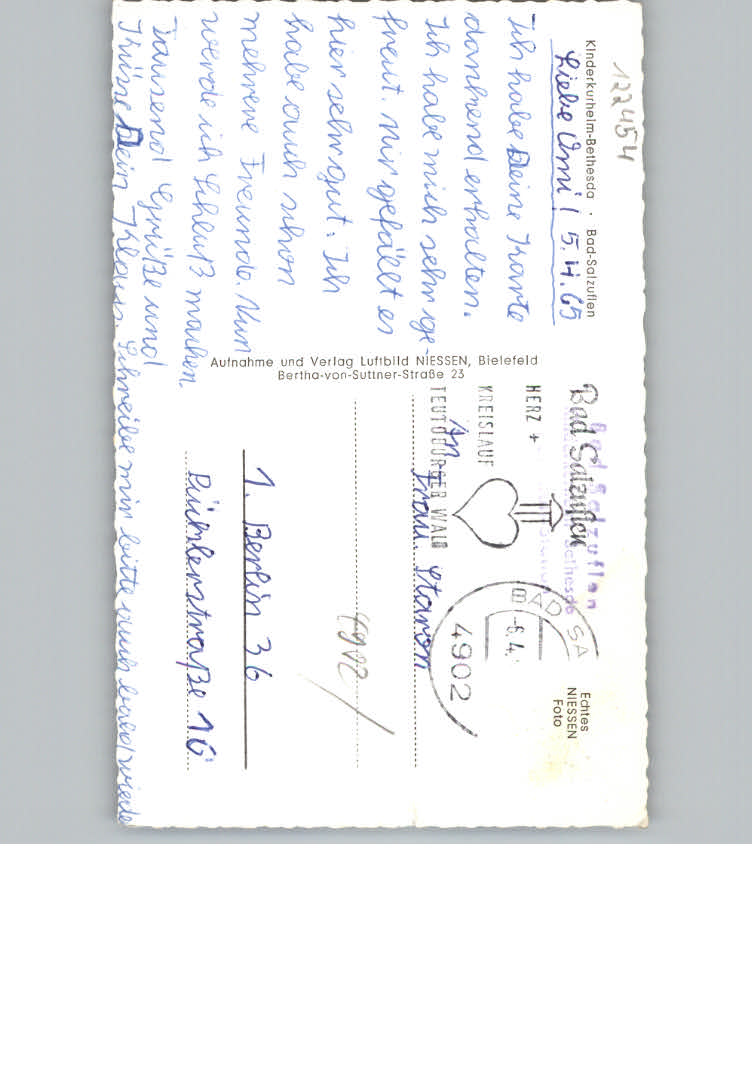 122454
Kinderkurheim-Bethesda · Bad-Salzuflen
Liebe Omi! 5.4.65
Ich habe Deine Karte
dankend erhalten.
Ich habe mich sehr ge-
freut. Mir gefällt es
hier sehr gut. Ich
habe auch schon
mehrere Freunde. Nun
werde ich Schluß machen.
Tausend Grüße und
Küsse Dein Klaus. Schreibe mir bitte auch bald wieder
Aufnahme und Verlag Luftbild NIESSEN, Bielefeld
Bertha-von-Suttner-Straße 23
Bad Salzuflen
Bethesda
Bad Salzuflen
HERZ +
KREISLAUF
TEUTOBURGER WALD
BAD SA
-6.4.
4902
Echtes
NIESSEN
Foto
An
Frau Staron
4902
1. Berlin 36
Pücklerstraße 16